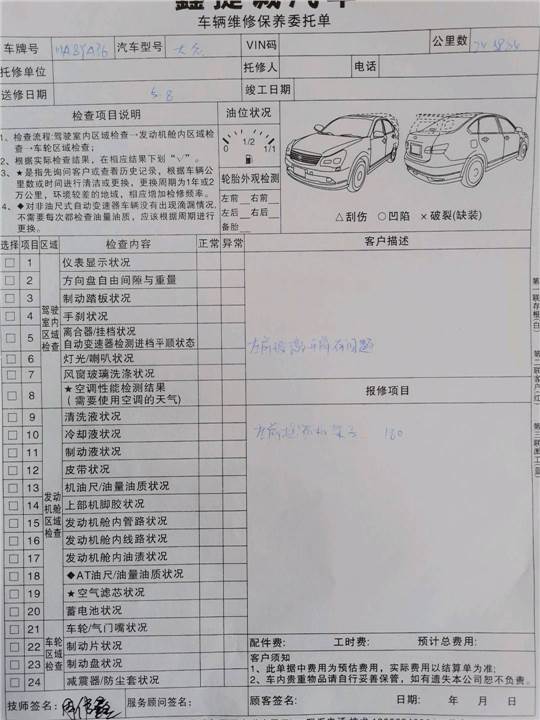 鑫捷诚汽车
车辆维修保养委托单
车牌号 汽车型号 大众 VIN码 公里数
托修单位 托修人 电话
送修日期 5.8 竣工日期
检查项目说明 油位状况
1、检查流程:驾驶室内区域检查→发动机舱内区域检
查→车轮区域检查;
2、根据实际检查结果，在相应结果下划“√”。
3、★是指先询问客户或查看历史记录，根据车辆公
里数或时间进行清洁或更换，更换周期为1年或2
万公里，环境较差的地域，相应增加检修频率。
4、◆对非油尺式自动变速器车辆没有出现滴漏情况，
不需要每次都检查油量油质，应该根据周期进行
更换。
0 1/2 1/1
轮胎外观检测
左前 右前
左后 右后
备胎
△刮伤 ○凹陷 ×破裂(缺装)
选择 项目 区域 检查内容 正常 异常 客户描述
驾驶室内区域检查
□ 1 仪表显示状况
□ 2 方向盘自由间隙与重量
□ 3 制动踏板状况
□ 4 手刹状况
□ 5 离合器/挂档状况
自动变速器检测进档平顺状态
□ 6 灯光/喇叭状况
□ 7 风窗玻璃洗涤状况
□ 8 ★空调性能检测结果
(需要使用空调的天气)
左前玻璃升降有问题
报修项目
左前
160
发动机舱区域检查
□ 9 清洗液状况
□ 10 冷却液状况
□ 11 制动液状况
□ 12 皮带状况
□ 13 机油尺/油量油质状况
□ 14 上部机脚胶状况
□ 15 发动机舱内管路状况
□ 16 发动机舱内线路状况
□ 17 发动机舱内油渍状况
□ 18 ◆AT油尺/油量油质状况
□ 19 ★空气滤芯状况
□ 20 蓄电池状况
车轮区域检查
□ 21 车轮/气门嘴状况
□ 22 制动片状况
□ 23 制动盘状况
□ 24 减震器/防尘套状况
配件费: 工时费: 预计总费用:
客户须知
1、此单据中费用为预估费用，实际费用以结算单为准;
2、车内贵重物品请自行妥善保管，如有遗失本公司恕不负责。
技师签名: 服务顾问签名: 顾客签名: 日期: 年 月 日
第一联存根(白)
第二联客户(红)